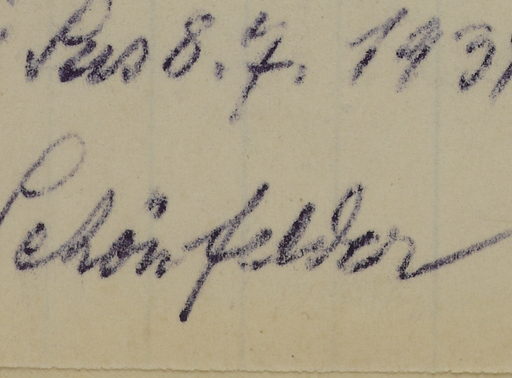 8. 7. 193
Schönfelder